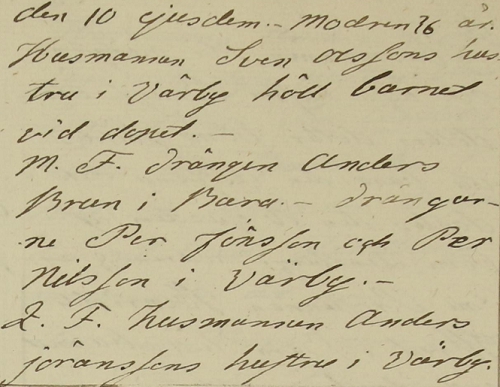 den 10 ejusdem. - Modren 26 år.
Husmannen Sven Olssons hus-
tru i Värby höll barnet
vid dopet. -
M. F. drängen Anders
Brun i Bara. - drängar-
ne Per Jönsson och Per
Nilsson i Värby. -
Q. F. husmannen Anders
Jöranssons hustru i Värby.